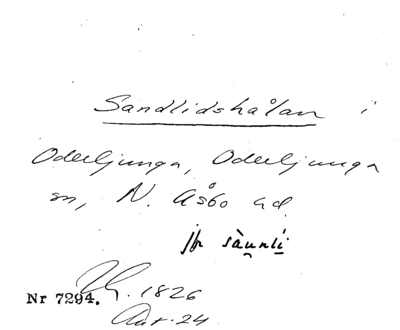 Sandlidshålan i
Oderljunga, Oderljunga
sn, N. Åsbo hd.
jfr sàu̯nlí
Nr 7294. 1826
Avr. 24